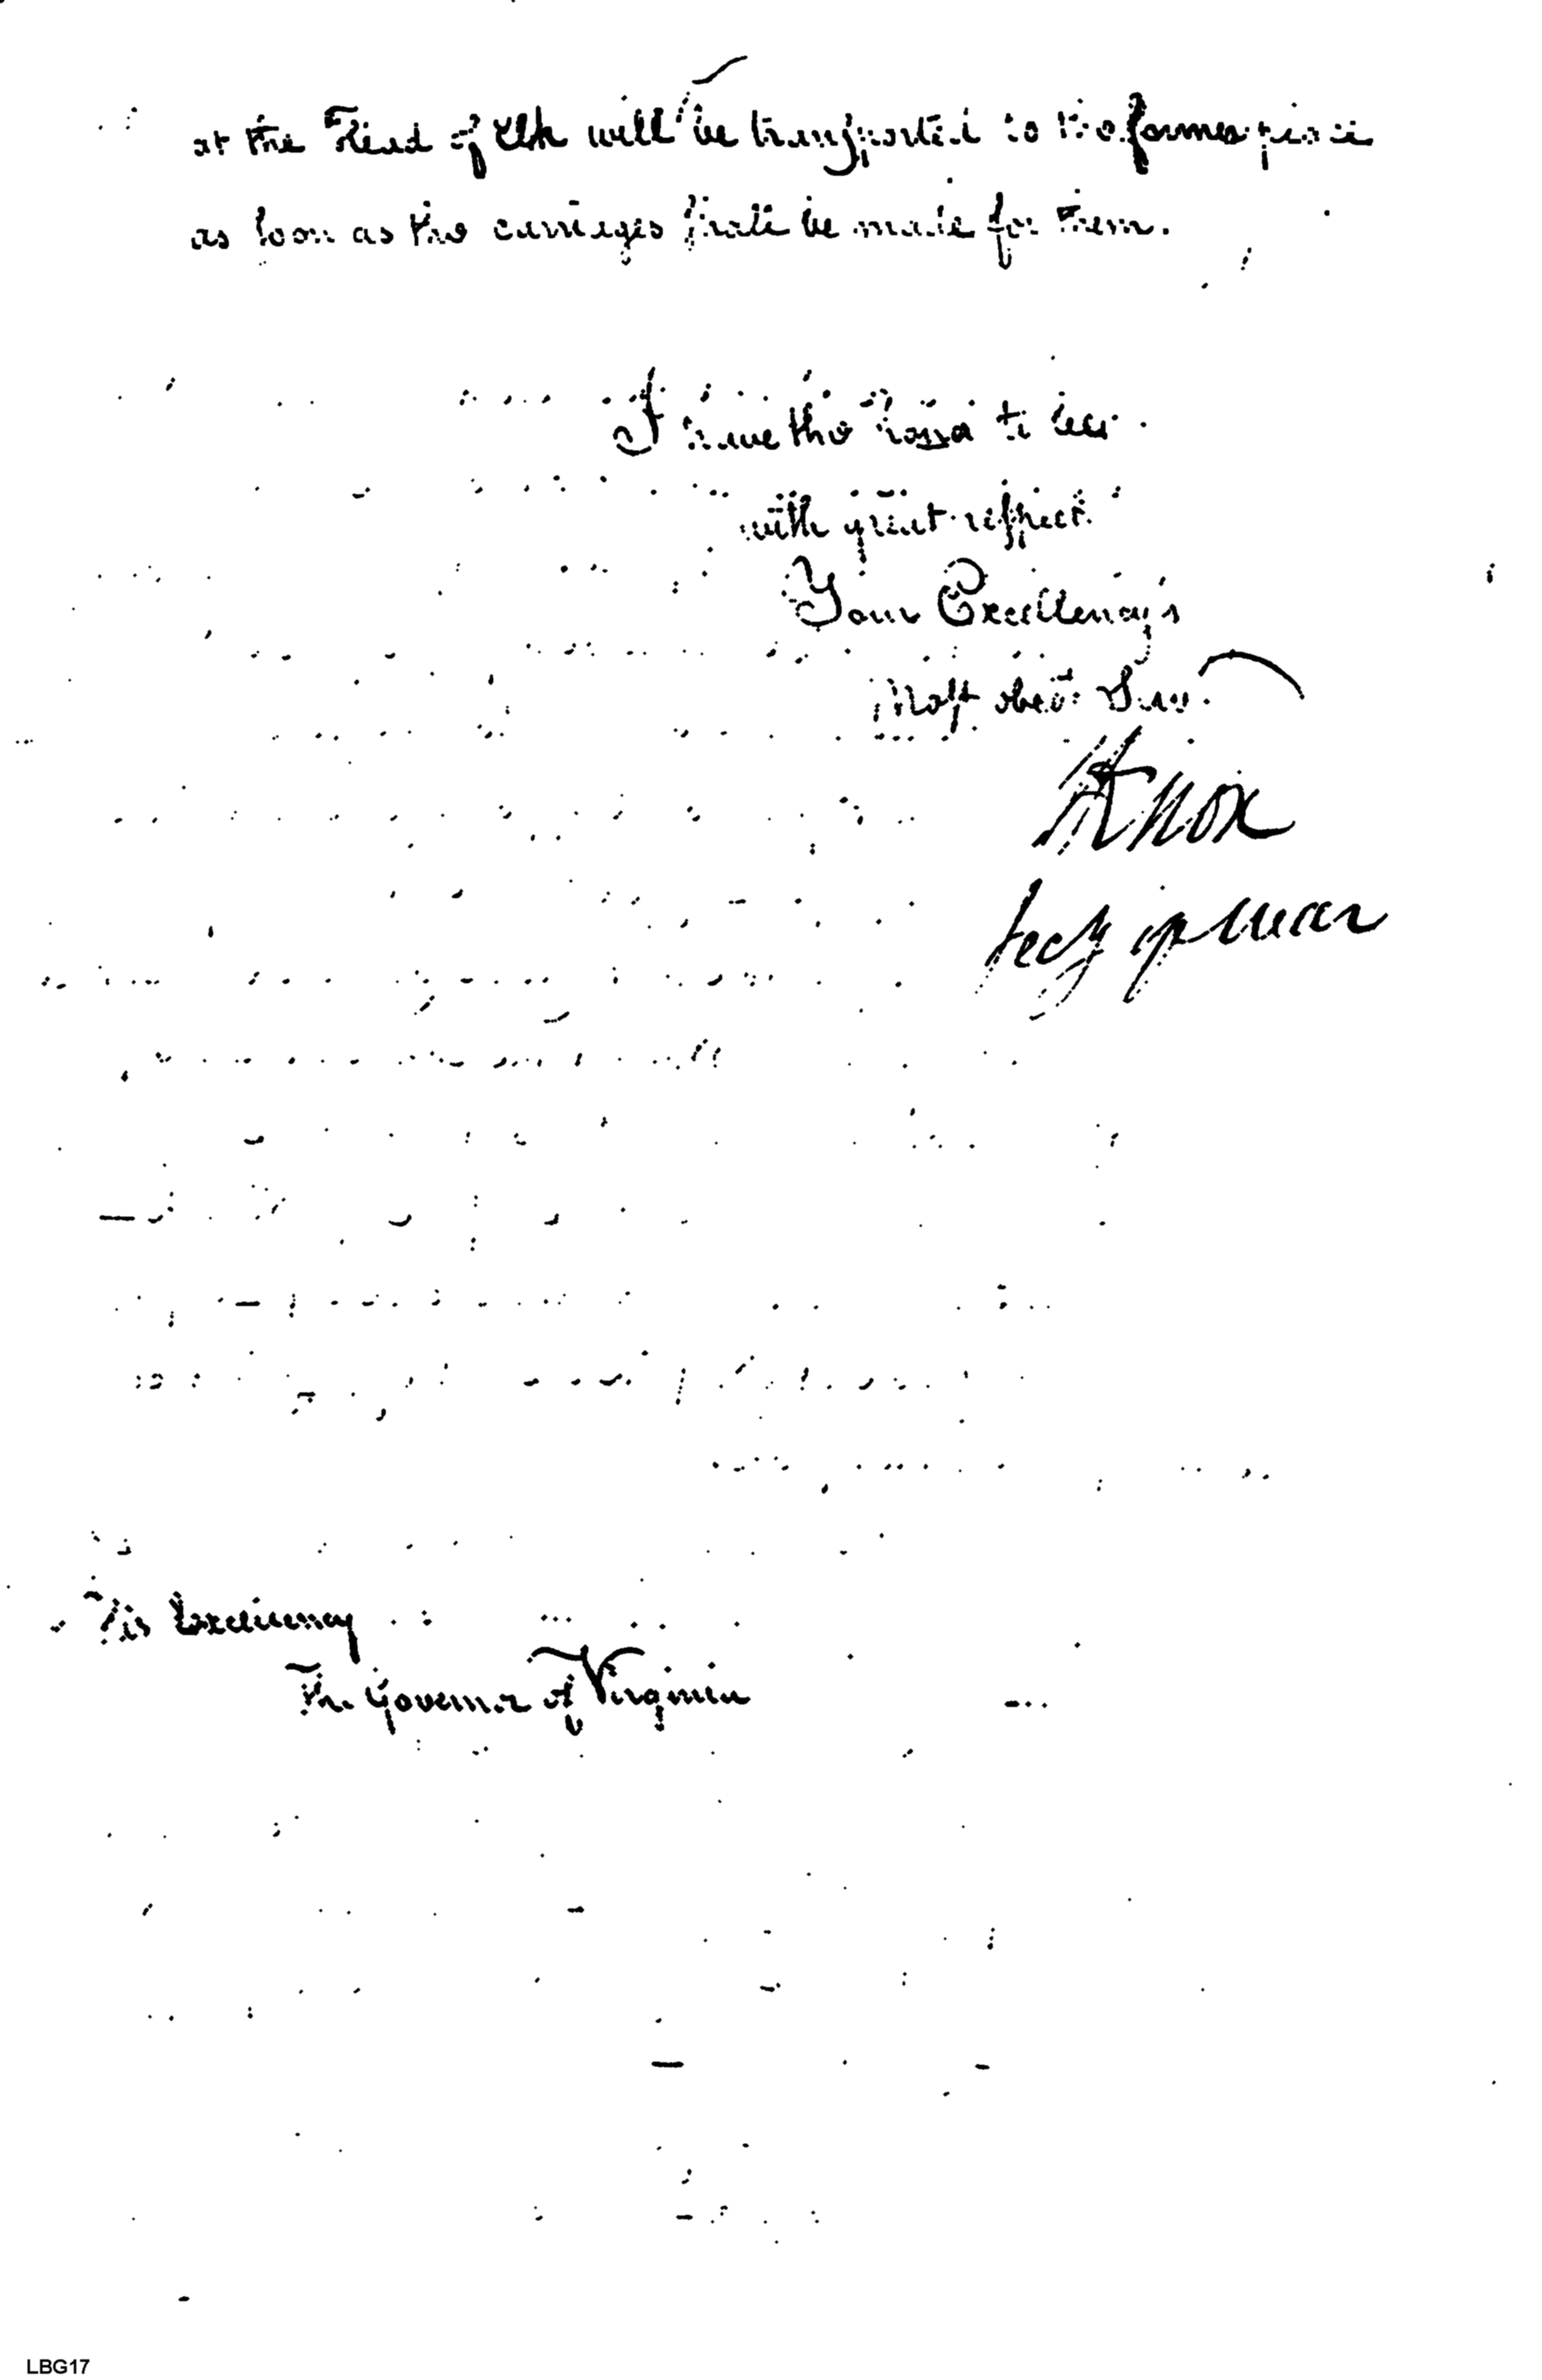 at the Head of Elk will be transported to the former place
as soon as the carriages shall be made for them.
I have the honor to be
with great respect
Your Excellency's
Most obed.t Serv.
HKnox
secy of war
His Excellency
The Governor of Virginia
LBG17